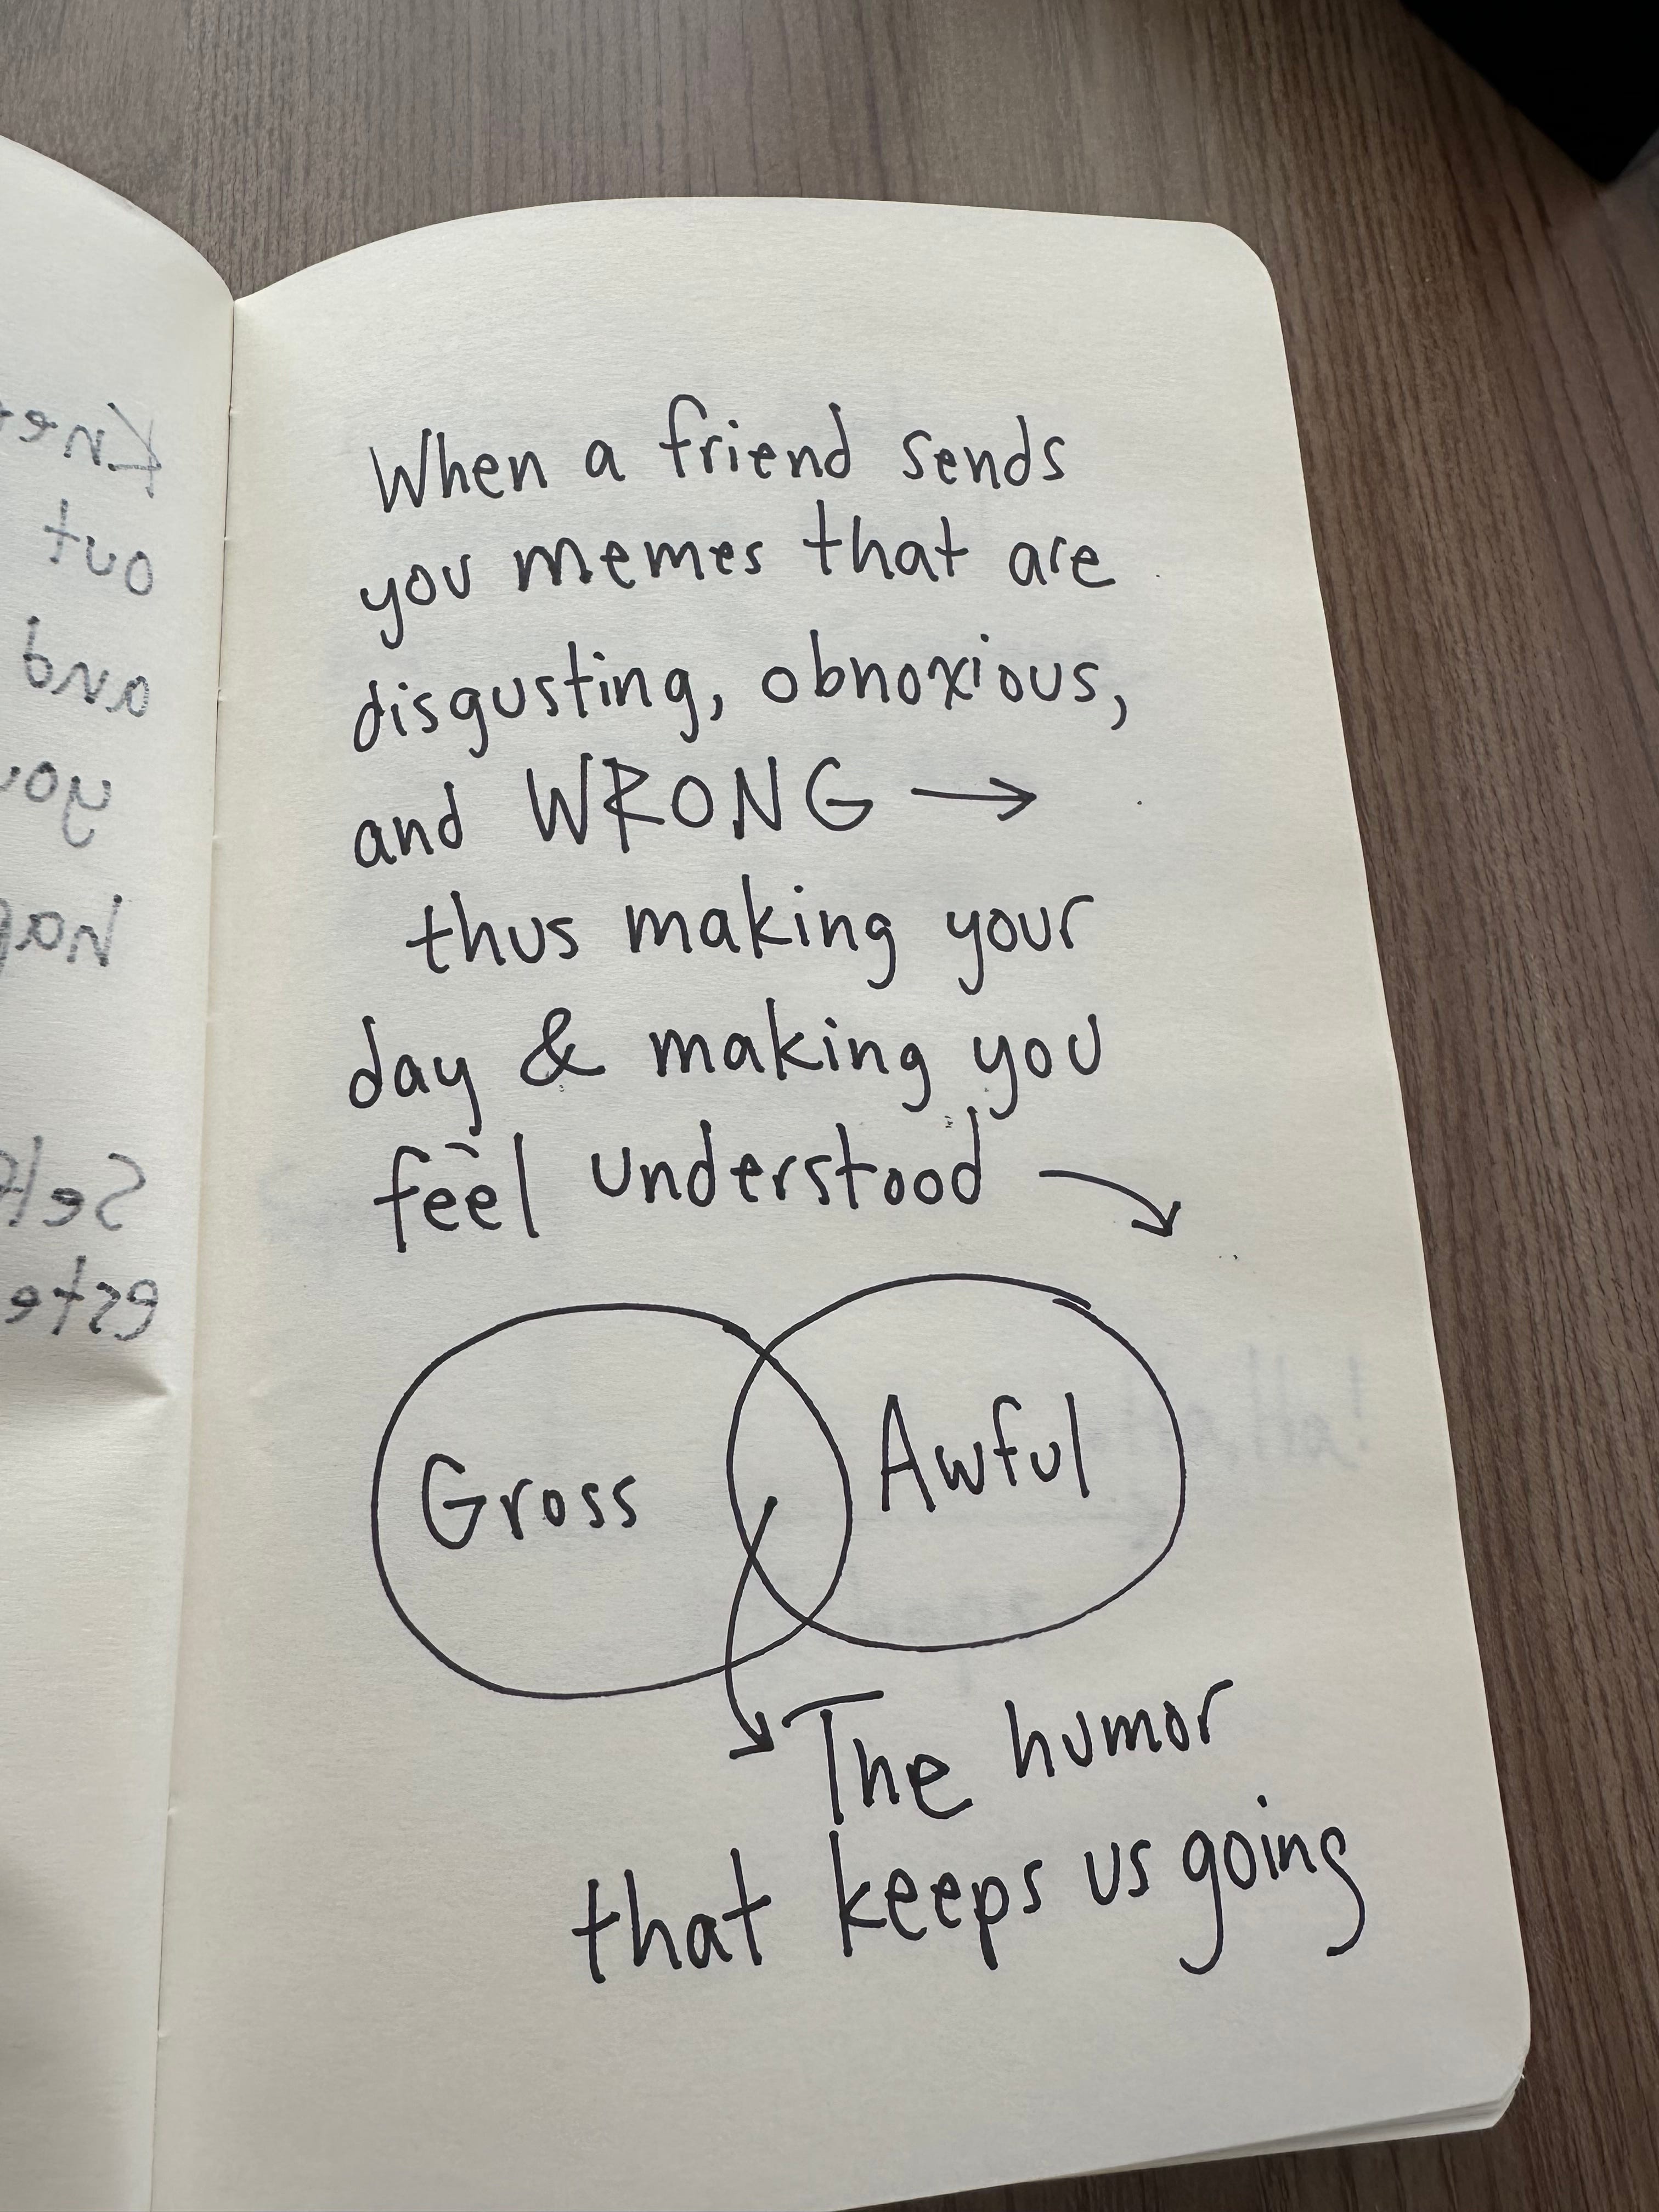 When a friend sends
you memes that are
disgusting, obnoxious,
and WRONG →
thus making your
day & making you
feel understood
Gross
Awful
The humor
that keeps us going